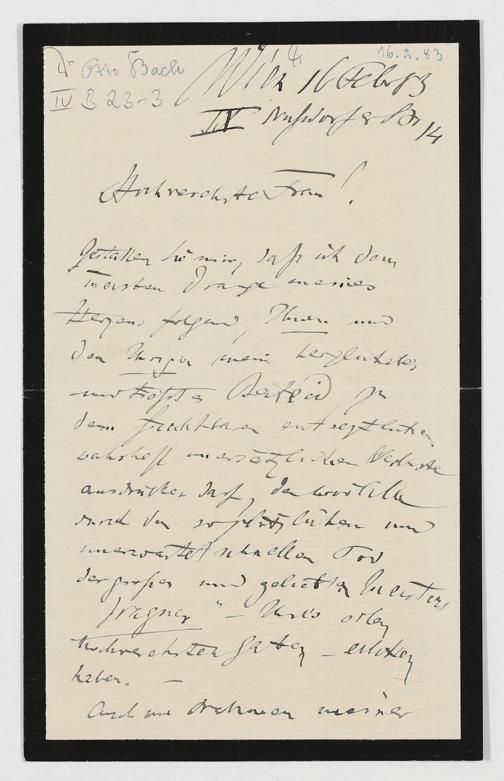 Dr Otto Bach
IV B 23-3
16.2.83
Wien 16 Feb 83
IX Nußdorferstr 14
Hochverehrte Frau!
Gestatten Sie mir, daß ich dem
Drange meines
Herzens folgend, Ihnen und
den Ihrigen mein herzlichstes
und tiefstes Beileid zu
dem furchtbaren entsetzlichen
wahrhaft unersetzlichen Verluste
ausdrücken darf, den wir Alle
durch den so plötzlichen und
unerwartet schnellen Tod
des großen und geliebten Meisters
"Wagner" – Ihres edlen
hochverehrten Gatten – erlitten
haben. –
Auch im Namen meiner